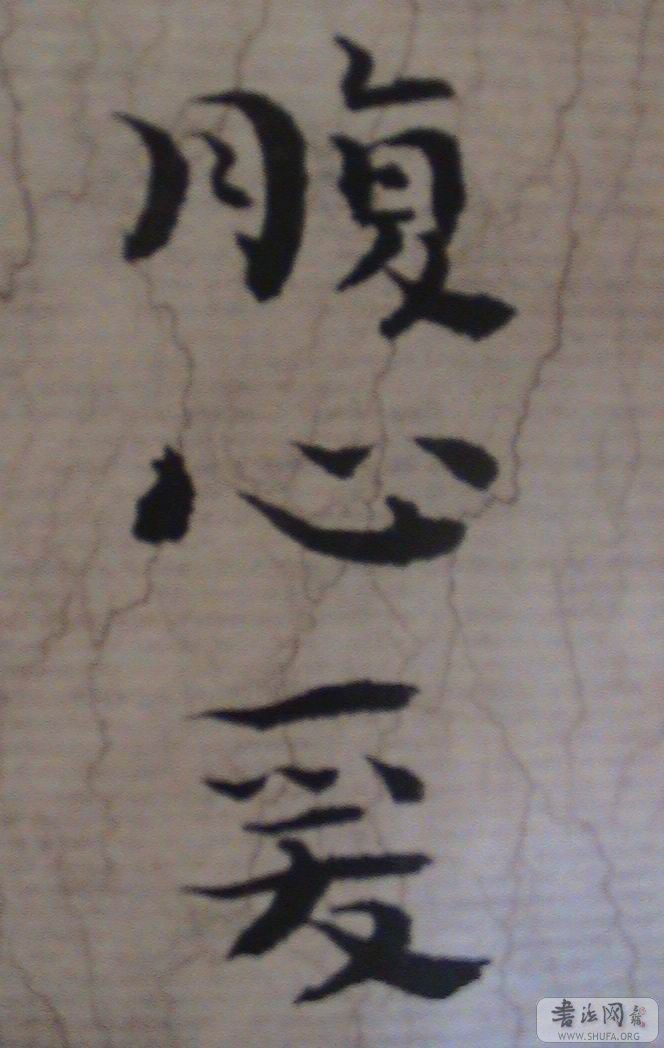 腹心爰
书法网
WWW.SHUFA.ORG